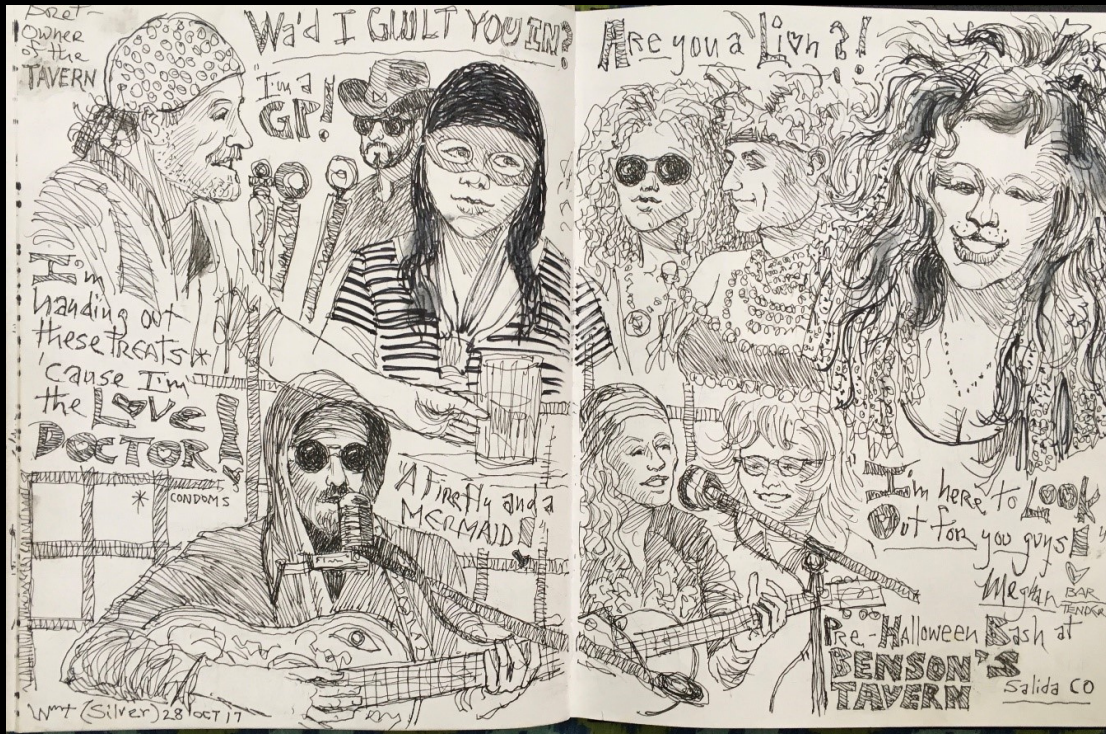 Owner
of the
TAVERN
Wa'd I GUILT YOU IN?
"I'm a
GP!
I'm
handing out
these TREATS*
'cause I'm
the LOVE
DOCTOR!
* CONDOMS
"A Firefly and a
MERMAID!
(Silver) 28 OCT 17
Are you a Lion?!
"I'm here to LOOK
Out for you guys!"
Meghan BAR
TENDER
Pre-Halloween Bash at
BENSON'S
TAVERN
Salida CO